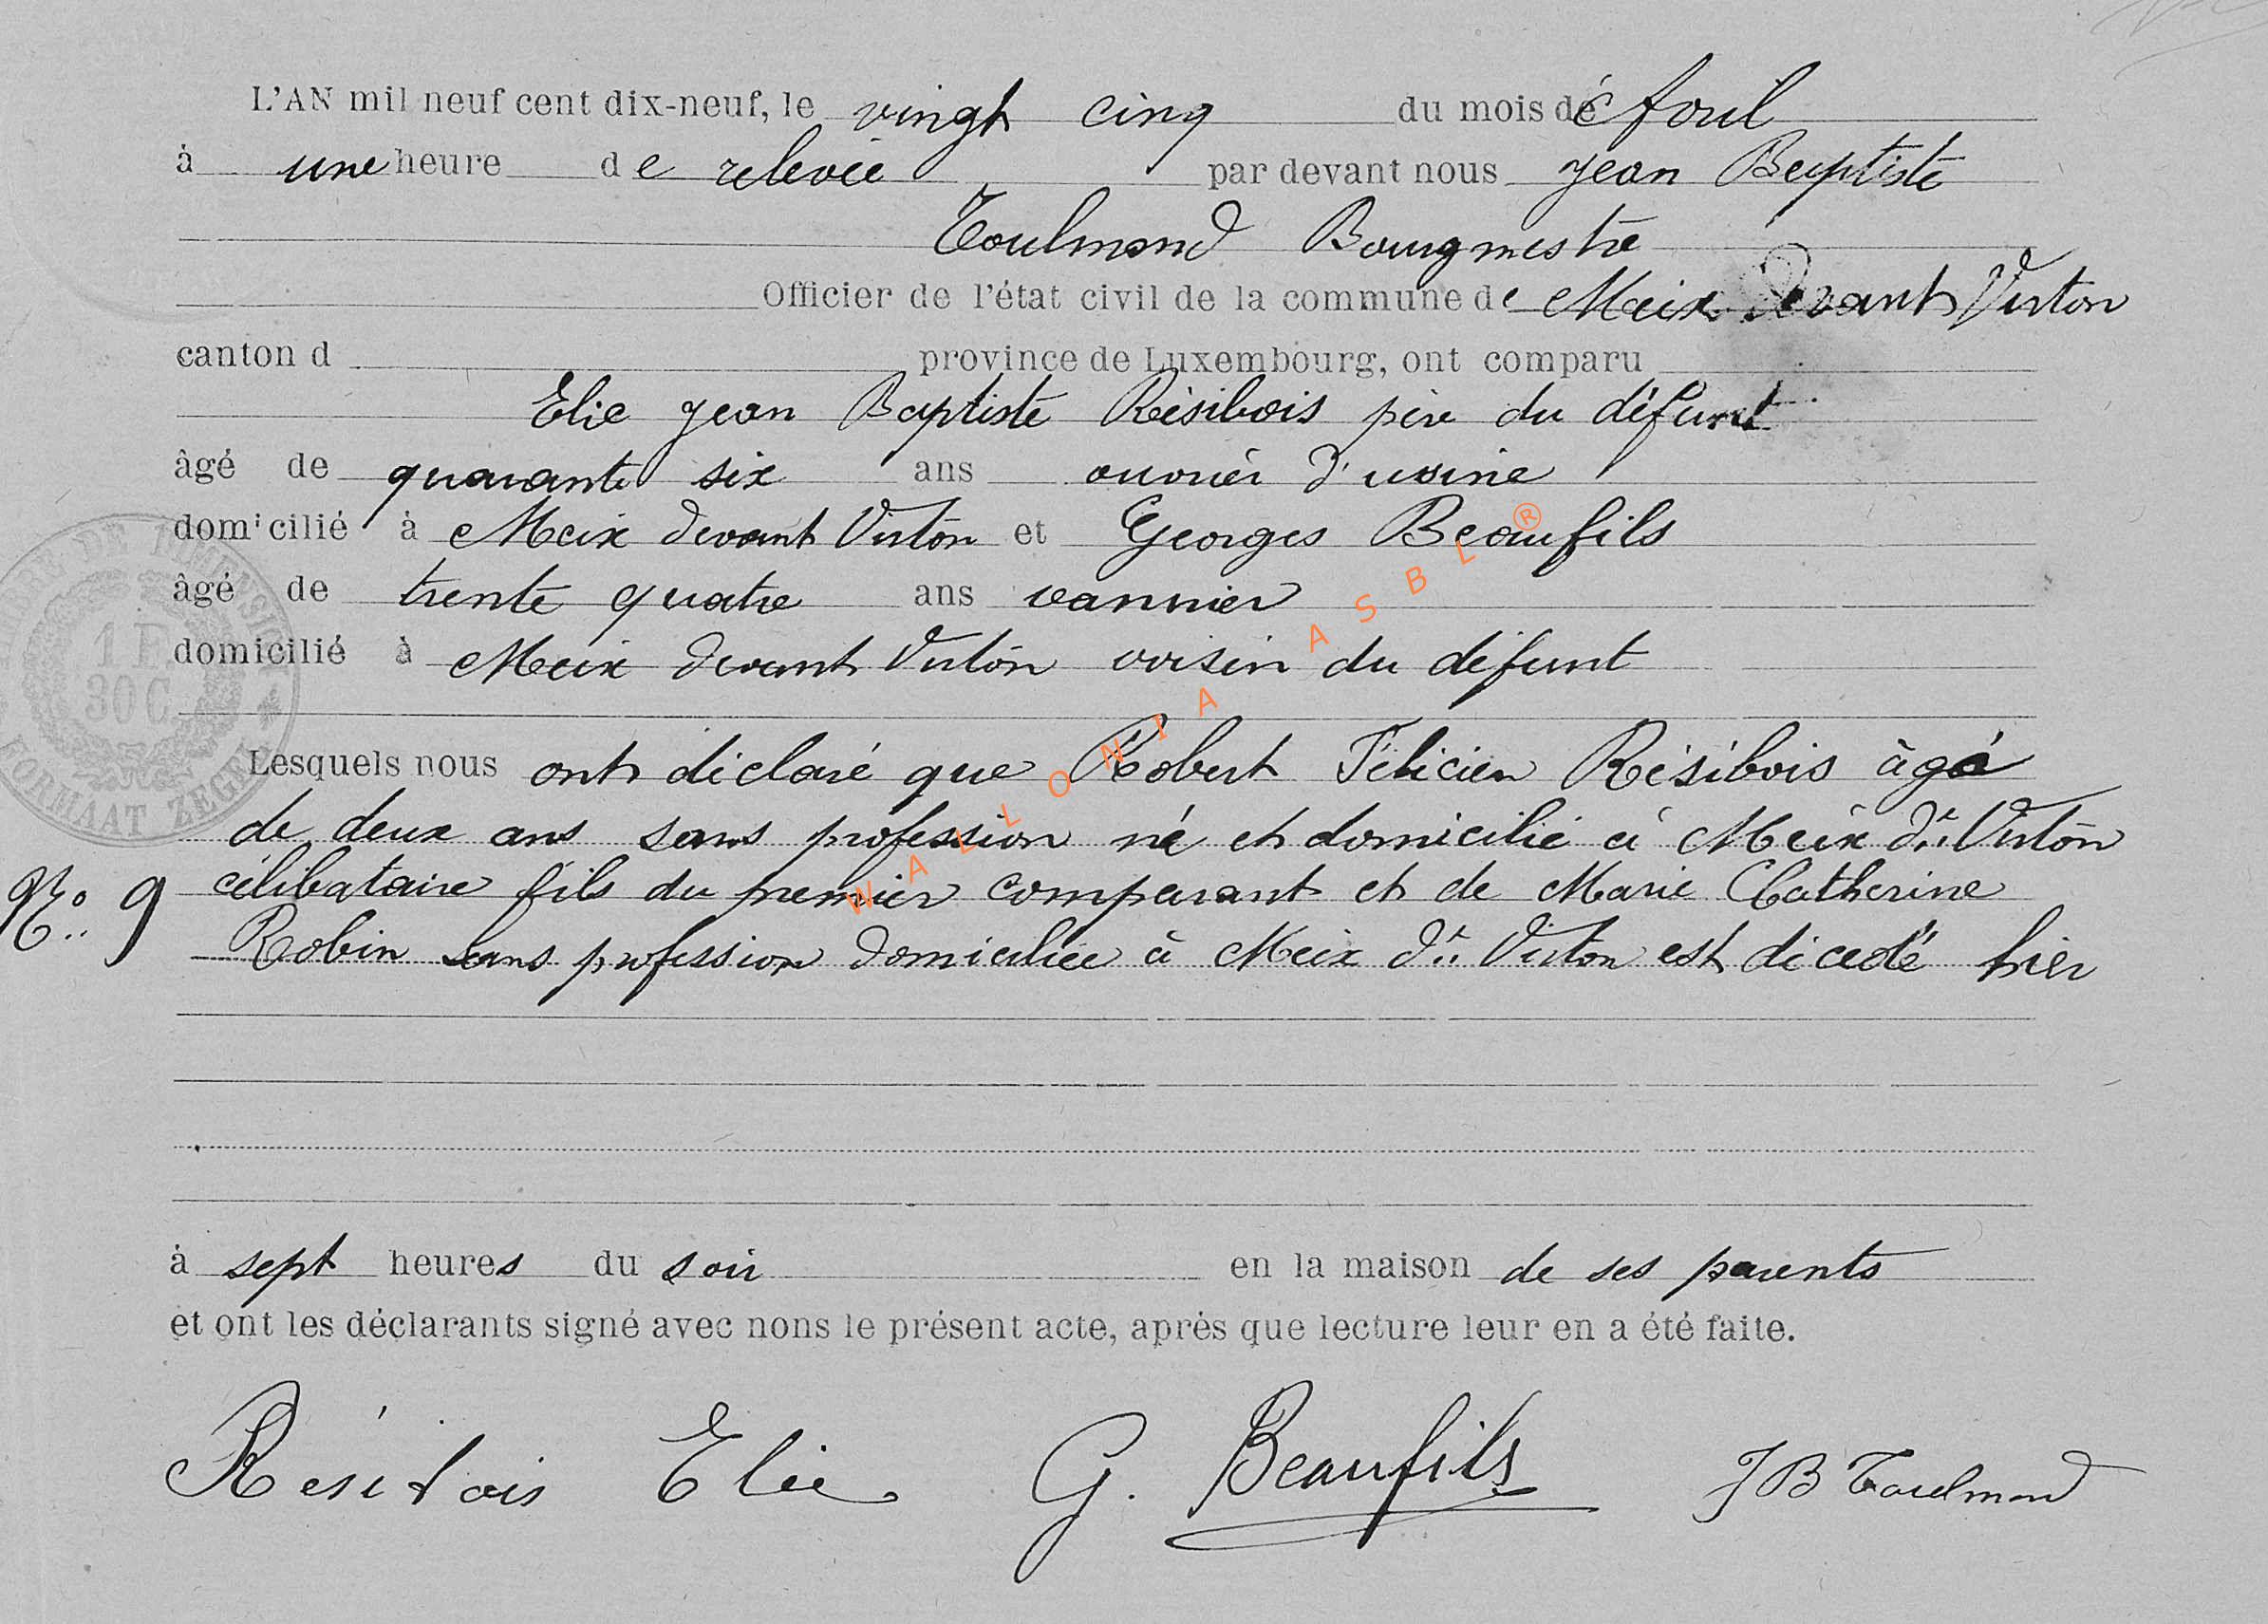 L'AN mil neuf cent dix-neuf, le vingt cinq du mois de
à une heure de relevée par devant nous Jean Baptiste
Toulmond Bourgmestre
Officier de l'état civil de la commune de Meix devant Virton
canton d province de Luxembourg, ont comparu
Elie Jean Baptiste Résibois père du défunt
âgé de quarante six ans ouvrier d'usine
domicilié à Meix devant Virton et Georges Beaufils
âgé de trente quatre ans vannier
domicilié à Meix devant Virton voisin du défunt
Lesquels nous ont déclaré que Robert Félicien Résibois âgé
de deux ans sans profession né et domicilié à Meix dt Virton
célibataire fils du premier comparant et de Marie Catherine
No 9
Robin sans profession domiciliée à Meix dt Virton est décédé hier
à sept heures du soir en la maison de ses parents
et ont les déclarants signé avec nons le présent acte, après que lecture leur en a été faite.
Résibois Elie G. Beaufils JB Toulmond
1 F. 30 C.
FORMAAT ZEGEL
WALLONIA ASBL ®